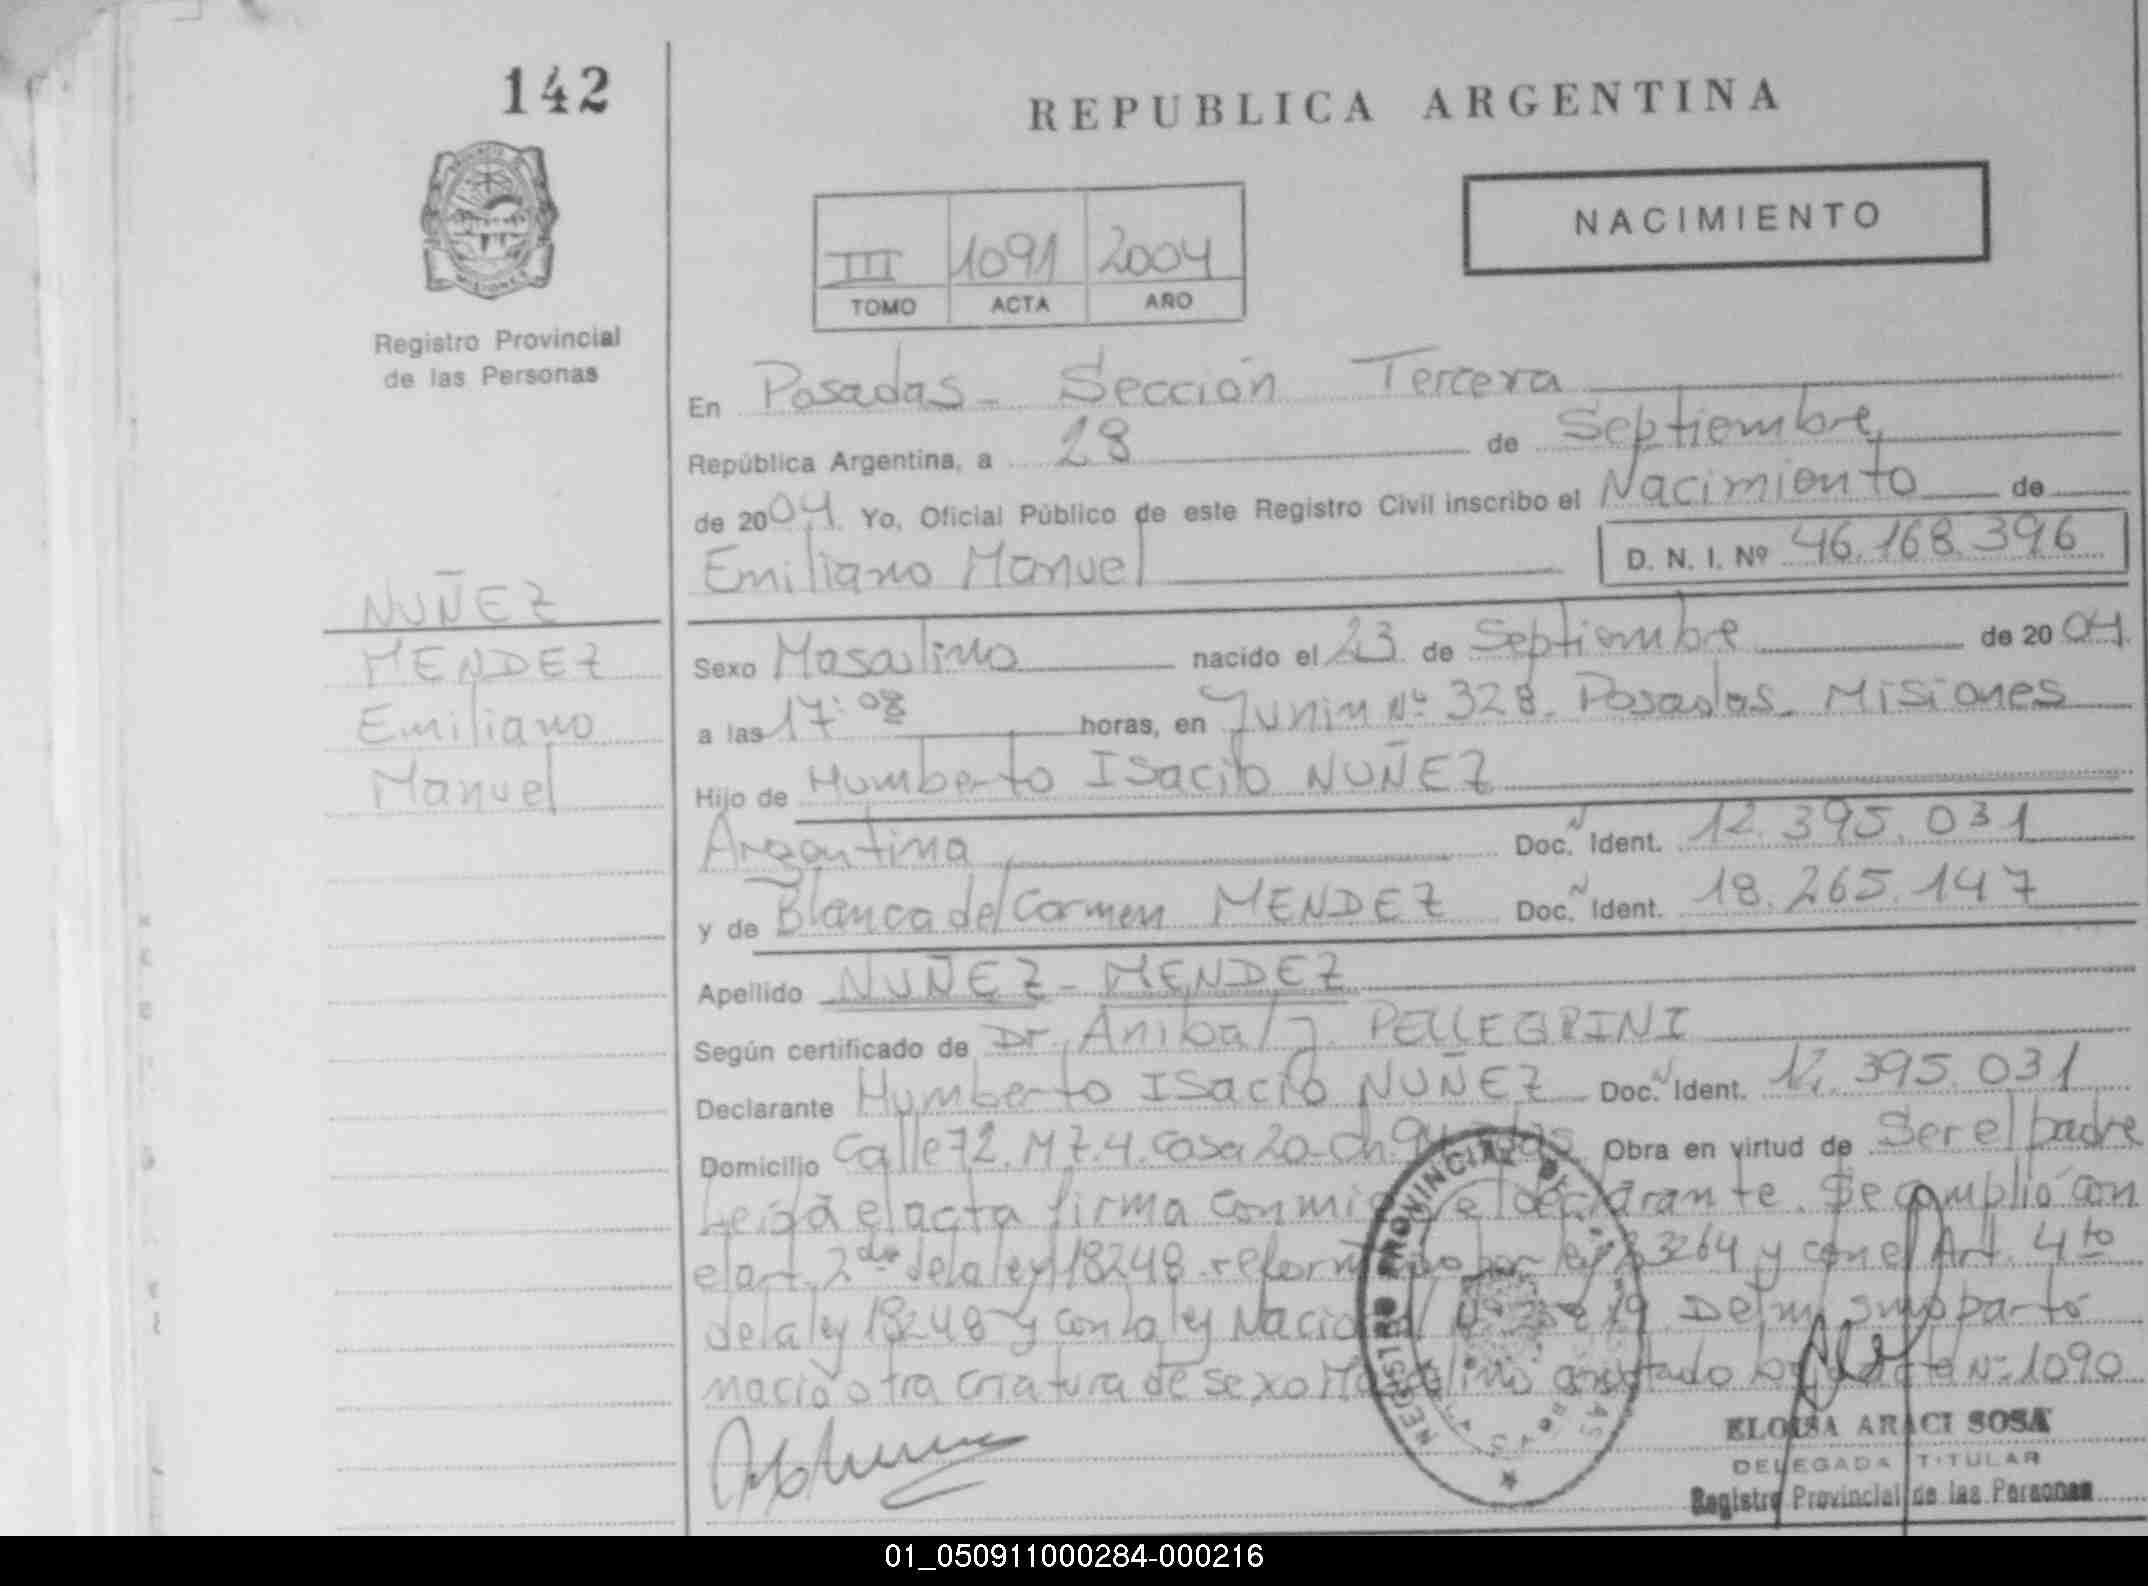 142
REPUBLICA ARGENTINA
NACIMIENTO
III 1091 2004
TOMO ACTA AÑO
Registro Provincial
de las Personas
En Posadas - Sección Tercera
República Argentina, a 28 de Septiembre
de 2004. Yo, Oficial Público de este Registro Civil inscribo el Nacimiento de
Emiliano Manuel D. N. I. Nº 46.168.396
NUÑEZ
MENDEZ
Emiliano
Manuel
Sexo Masculino nacido el 23 de Septiembre de 2004.
a las 17:08 horas, en Junin Nº 328. Posadas - Misiones
Hijo de Humberto Isacio NUÑEZ
Argentina Doc. Ident. 12.395.031
y de Blanca del Carmen MENDEZ Doc. Ident. 18.265.147
Apellido NUÑEZ - MENDEZ
Según certificado de Dr. Anibal J. PELLEGRINI
Declarante Humberto Isacio NUÑEZ Doc. Ident. 12.395.031
Domicilio Calle 72. M 7.4. Casa 20 - Ch. Obra en virtud de Ser el padre
Leida el acta firma conmigo el declarante. Se cumplió con
el art. 2do de la ley 18248 reformado por ley 23264 y con el Art. 4to
de la ley 18248 y con la ley Nacional Nº Del mismo parto
nació otra criatura de sexo Masculino anotado bajo acta Nº 1090
REGISTRO PROVINCIAL DE LAS
ELOISA ARACI SOSA
DELEGADA TITULAR
Registro Provincial de las Personas
01_050911000284-000216